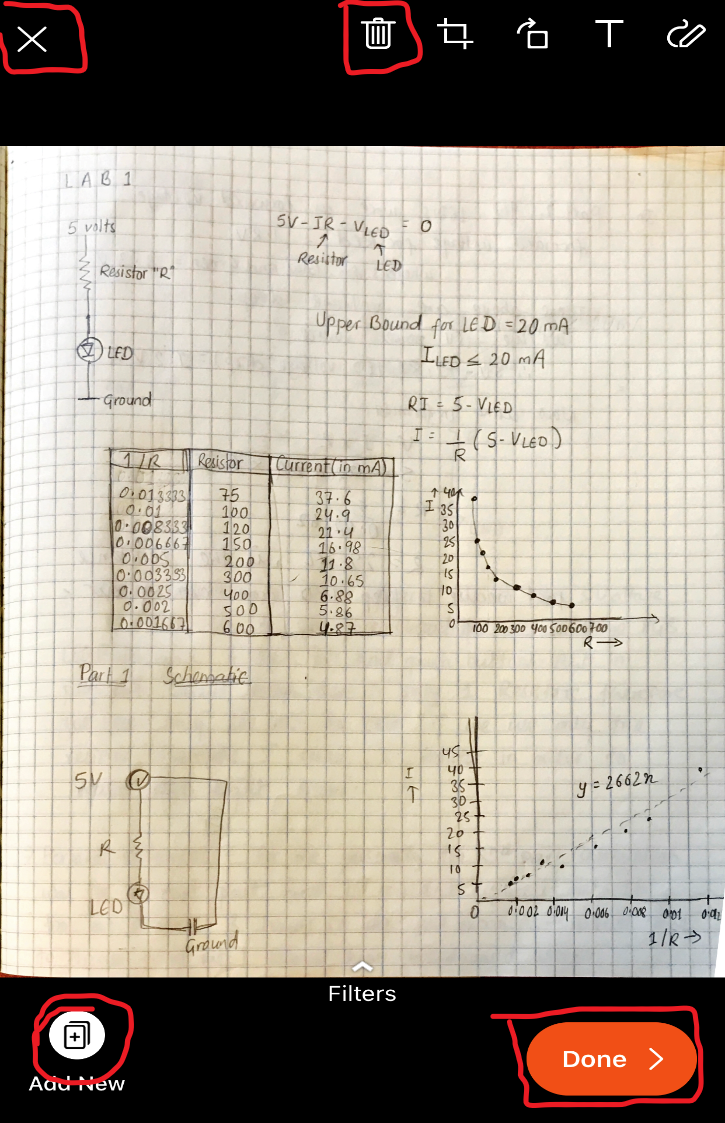 T
LAB 1
5 volts
5V - IR - VLED = 0
Resistor
LED
Resistor "R"
Upper Bound for LED = 20 mA
LED
ILED ≤ 20 mA
Ground
RI = 5 - VLED
I = 1/R (5 - VLED)
1/R Resistor Current (in mA)
0.013333 75 37.6
0.01 100 24.9
0.008333 120 21.4
0.006667 150 16.98
0.005 200 11.8
0.003333 300 10.65
0.0025 400 6.88
0.002 500 5.86
0.001667 600 4.87
↑ 40
I 35
30
25
20
15
10
5
0
100 200 300 400 500 600 700
R →
Part 1 Schematic
5V
V
R
LED
Ground
I
↑
45
40
35
30
25
20
15
10
5
y = 2662x
0 0.002 0.004 0.006 0.008 0.01
1/R →
Filters
Add New
Done